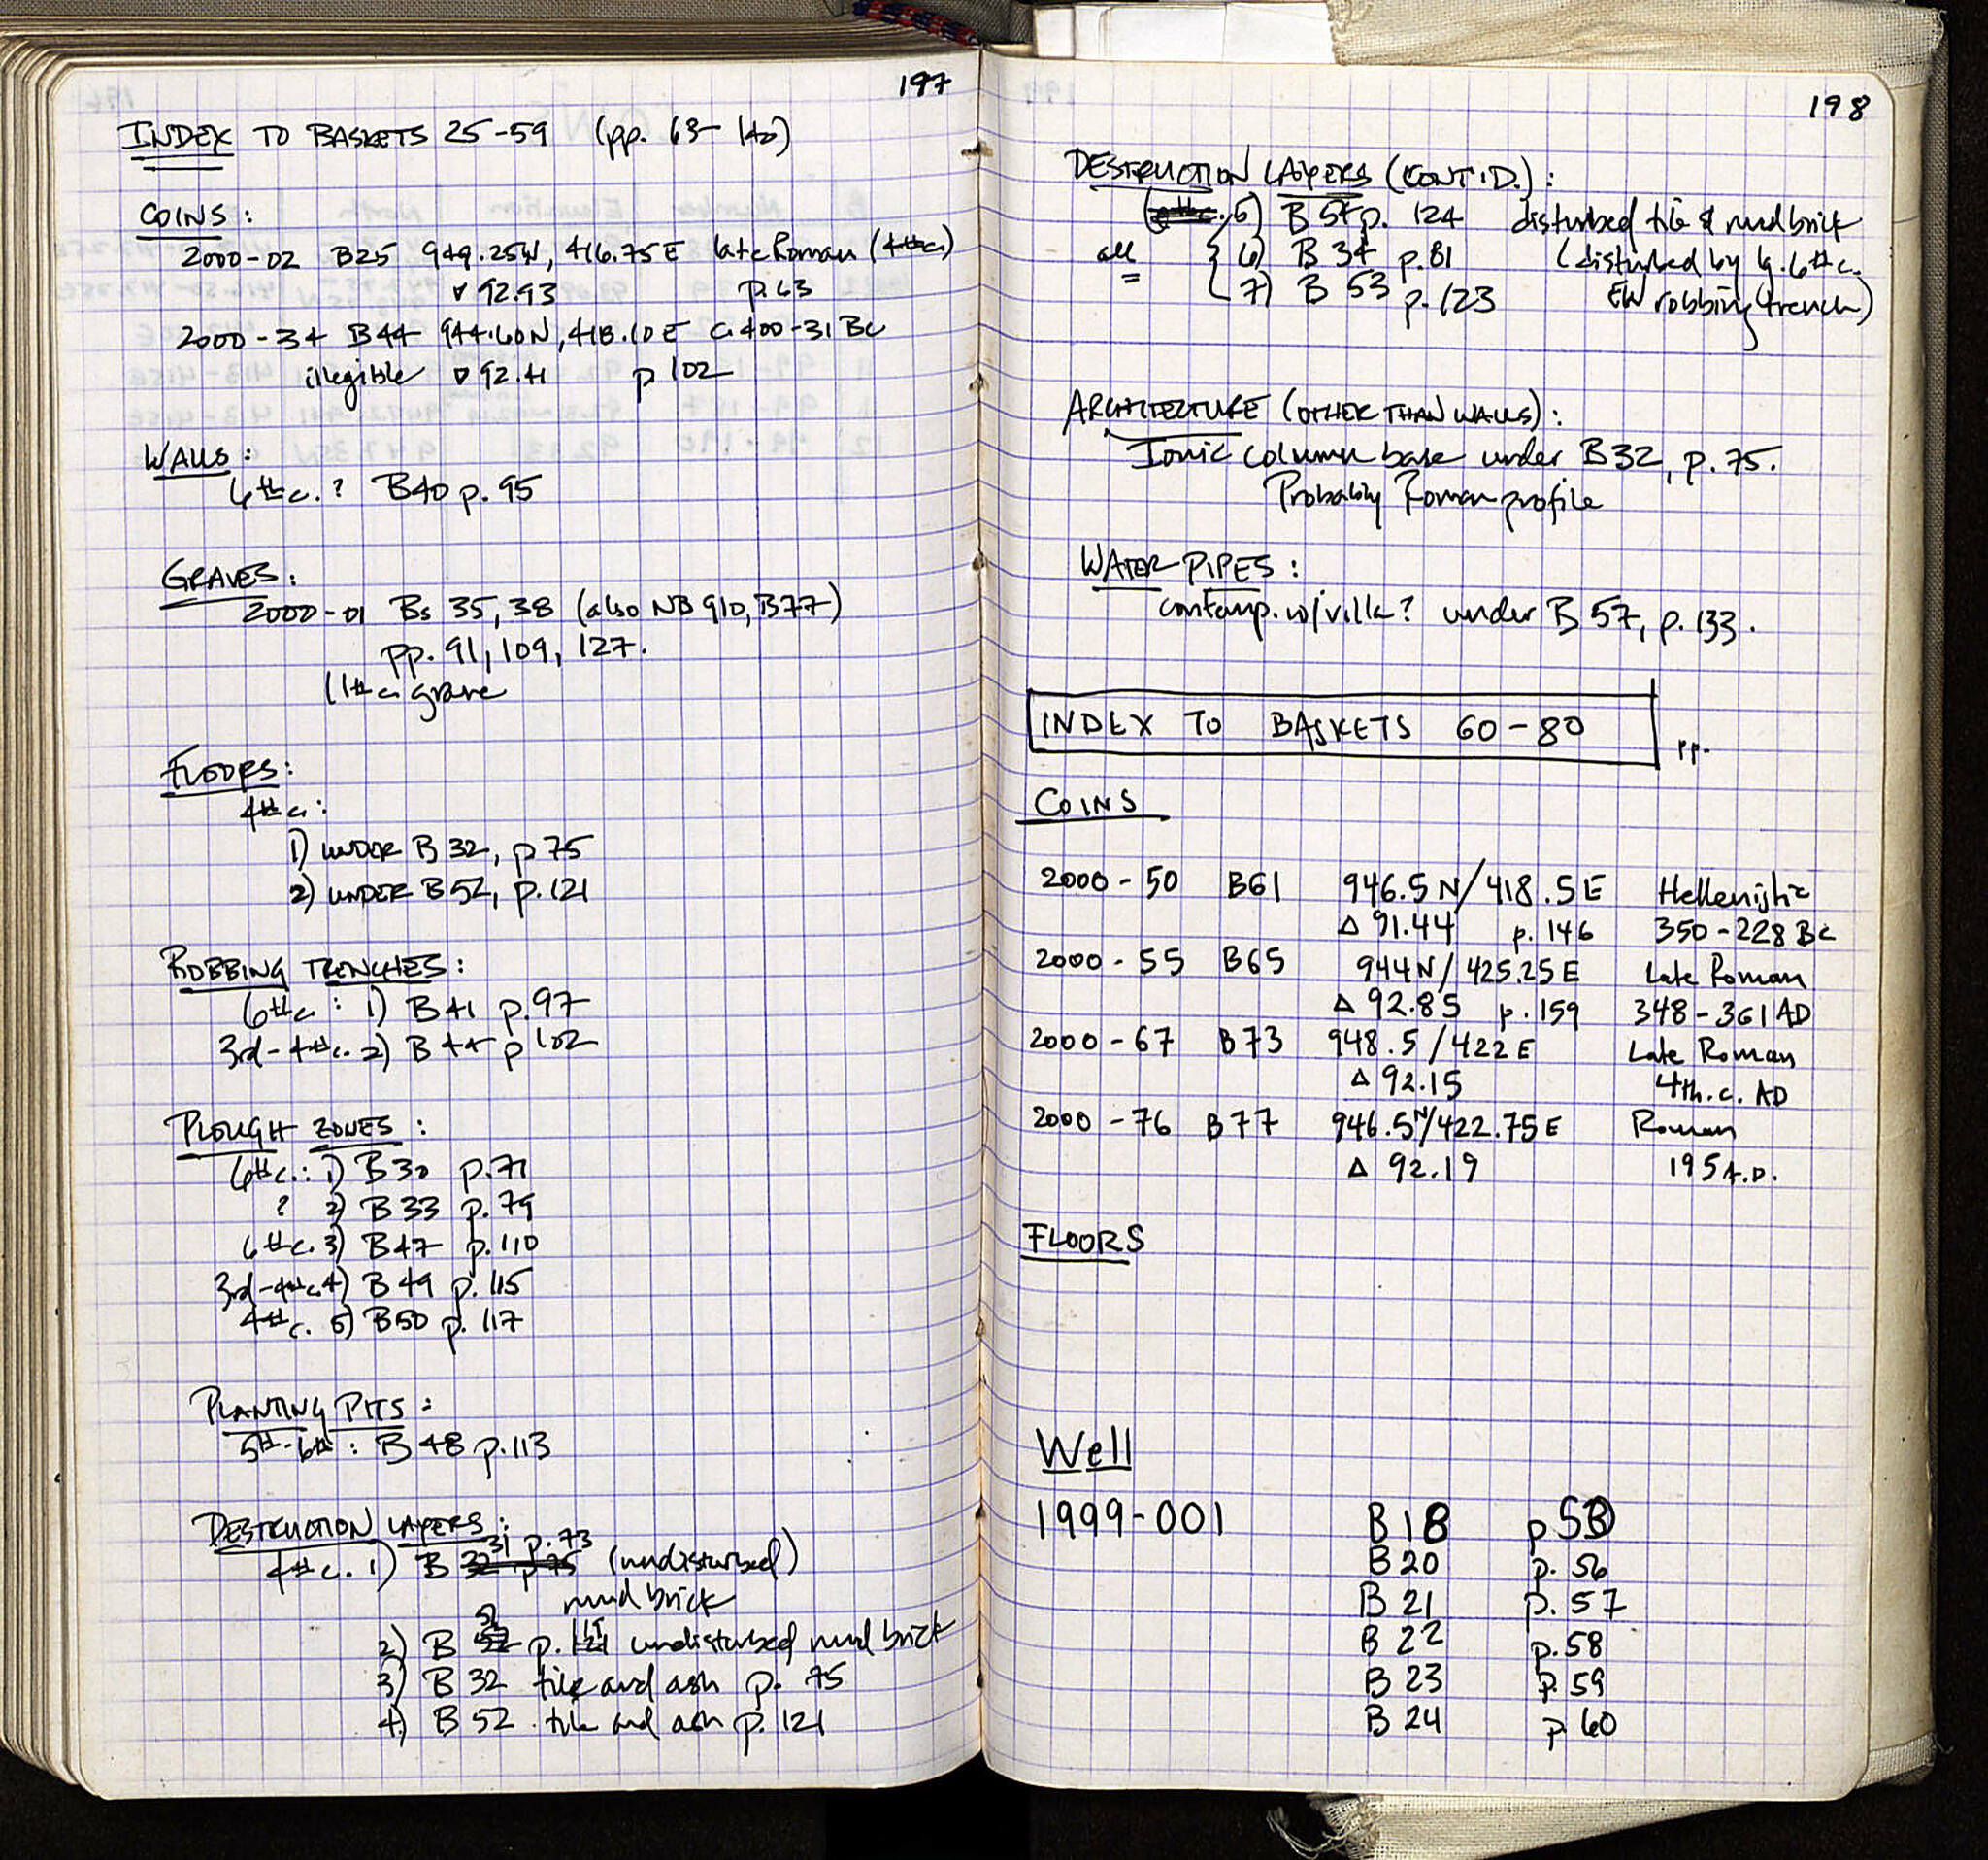 197
INDEX TO BASKETS 25-59 (pp. 63-140)
COINS:
2000-02 B25 949.25N, 416.75E late Roman (4th c.)
▽ 92.93 p. 63
2000-34 B44 944.60N, 418.10E c. 400-31 BC
illegible ▽ 92.41 p 102
WALLS:
6th c. ? B40 p. 95
GRAVES:
2000-01 Bs 35, 38 (also NB 910, B77)
pp. 91, 109, 127.
11th c. grave
FLOORS:
4th c.:
1) UNDER B 32, p 75
2) UNDER B 52, p. 121
ROBBING TRENCHES:
6th c. : 1) B41 p. 97
3rd-4th c. 2) B 44 p 102
PLOUGH ZONES:
6th c.: 1) B30 p. 71
? 2) B 33 p. 79
6th c. 3) B47 p. 110
3rd-4th c. 4) B 49 p. 115
4th c. 5) B50 p. 117
PLANTING PITS:
5th-6th : B 48 p. 113
DESTRUCTION LAYERS:
31 p. 73
4th c. 1) B 32 p 75 (undisturbed)
mud brick
2) B p. undisturbed mud brick
3) B 32 tile and ash p. 75
4) B 52 tile and ash p. 121
198
DESTRUCTION LAYERS (CONT'D.):
5) B 54 p. 124 disturbed tile & mud brick
all { 6) B 34 p. 81 (disturbed by lg. 6th c.
7) B 53 p. 123 EW robbing trench)
ARCHITECTURE (OTHER THAN WALLS):
Ionic column base under B32, p. 75.
Probably Roman profile
WATER PIPES:
contemp. w/villa? under B 57, p. 133.
INDEX TO BASKETS 60-80 pp.
COINS
2000-50 B61 946.5 N/418.5 E Hellenistic
Δ 91.44 p. 146 350-228 BC
2000-55 B65 944N/425.25 E Late Roman
Δ 92.85 p. 159 348-361 AD
2000-67 B73 948.5/422 E Late Roman
Δ 92.15 4th. c. AD
2000-76 B77 946.5N/422.75 E Roman
Δ 92.19 195 A.D.
FLOORS
Well
1999-001 B18 p 50
B20 p. 56
B 21 p. 57
B 22 p. 58
B 23 p. 59
B 24 p 60